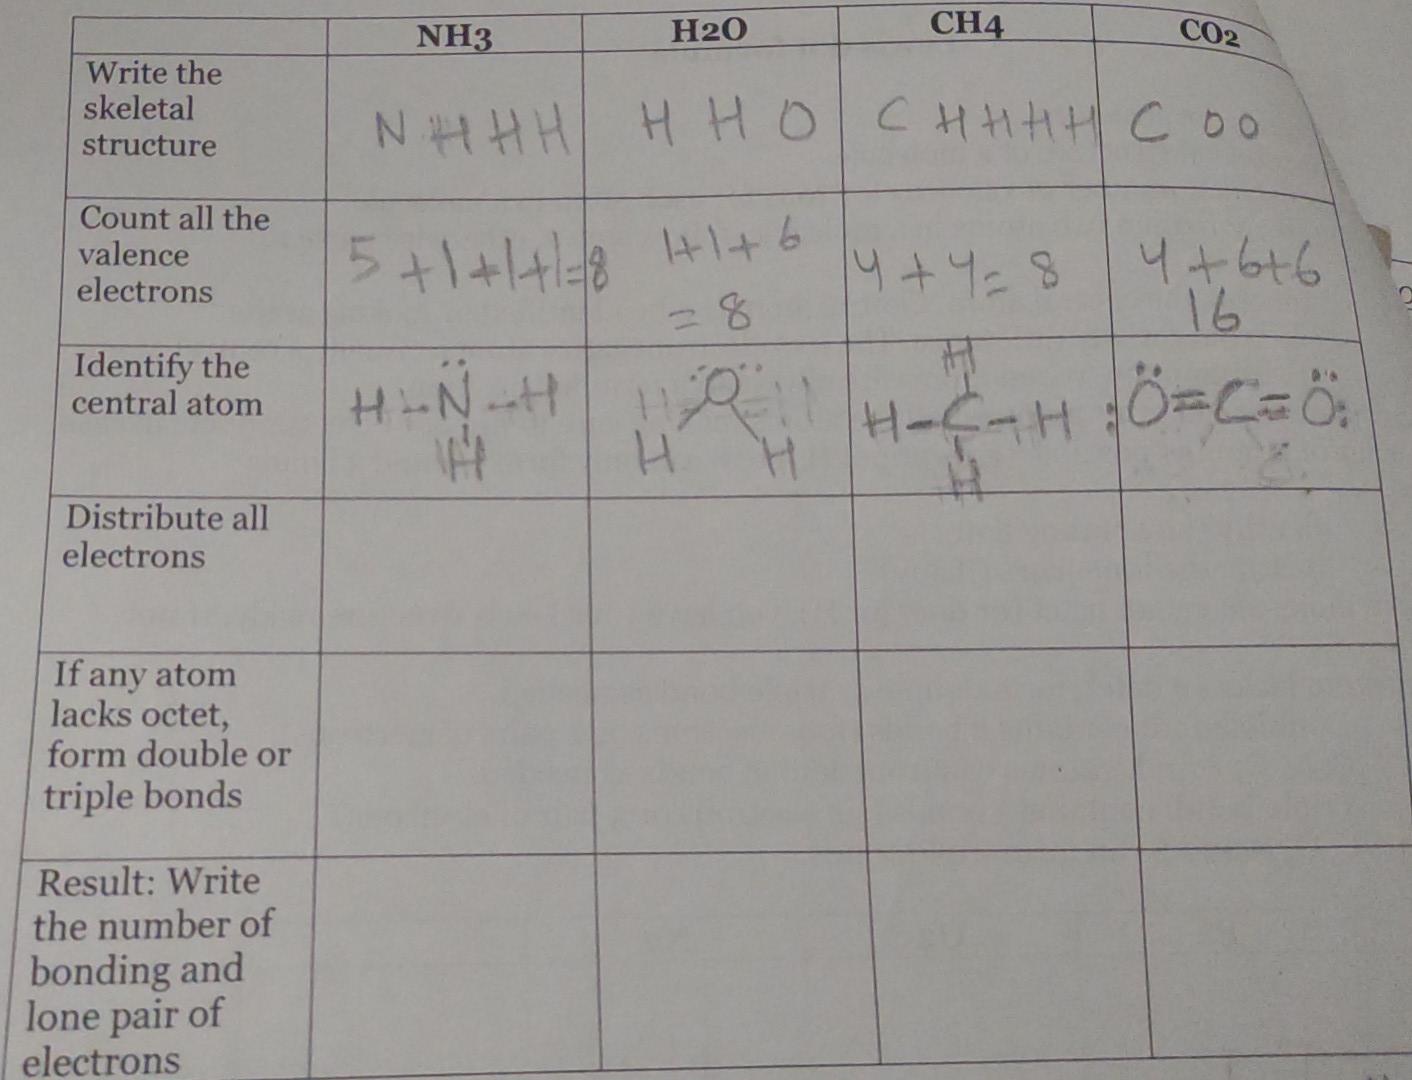 NH3 H2O CH4 CO2
Write the
skeletal
structure
N H H H H H O C H H H H C O O
Count all the
valence
electrons
5 + 1 + 1 + 1 = 8
1 + 1 + 6
= 8
4 + 4 = 8
4 + 6 + 6
16
Identify the
central atom
H - N̈ - H
H
O
H H
H
H - C - H
H
: Ö = C = Ö :
Distribute all
electrons
If any atom
lacks octet,
form double or
triple bonds
Result: Write
the number of
bonding and
lone pair of
electrons